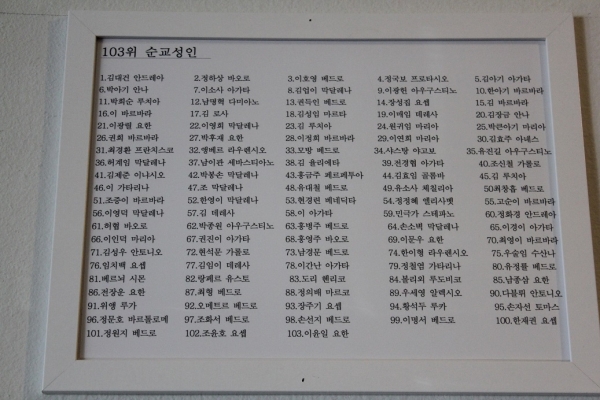 103위 순교성인
1.김대건 안드레아 2.정하상 바오로 3.이호영 베드로 4.정국보 프로타시오 5.김아기 아가타
6.박아기 안나 7.이소사 아가타 8.김업이 막달레나 9.이광헌 아우구스티노 10.한아기 바르바라
11.박희순 루치아 12.남명혁 다미아노 13.권득인 베드로 14.장성집 요셉 15.김 바르바라
16.이 바르바라 17.김 로사 18.김성임 마르타 19.이매임 데레사 20.김장금 안나
21.이광렬 요한 22.이영희 막달레나 23.김 루치아 24.원귀임 마리아 25.박큰아기 마리아
26.권희 바르바라 27.박후재 요한 28.이정희 바르바라 29.이연희 마리아 30.김효주 아녜스
31.최경환 프란치스코 32.앵베르 라우렌시오 33.모방 베드로 34.샤스탕 야고보 35.유진길 아우구스티노
36.허계임 막달레나 37.남이관 세바스티아노 38.김 율리에타 39.전경협 아가타 40.조신철 가롤로
41.김제준 이냐시오 42.박봉손 막달레나 43.홍금주 페르페투아 44.김효임 골룸바 45.김 루치아
46.이 가타리나 47.조 막달레나 48.유대철 베드로 49.유소사 체칠리아 50.최창흡 베드로
51.조증이 바르바라 52.한영이 막달레나 53.현경련 베네딕타 54.정정혜 엘리사벳 55.고순이 바르바라
56.이영덕 막달레나 57.김 데레사 58.이 아가타 59.민극가 스테파노 60.정화경 안드레아
61.허협 바오로 62.박종원 아우구스티노 63.홍병주 베드로 64.손소벽 막달레나 65.이경이 아가타
66.이인덕 마리아 67.권진이 아가타 68.홍영주 바오로 69.이문우 요한 70.최영이 바르바라
71.김성우 안토니오 72.현석문 가롤로 73.남경문 베드로 74.한이형 라우렌시오 75.우술임 수산나
76.임치백 요셉 77.김임이 데레사 78.이간난 아가타 79.정철염 가타리나 80.유정률 베드로
81.베르뇌 시몬 82.랑페르 유스토 83.도리 헨리코 84.볼리외 루도비코 85.남종삼 요한
86.전장운 요한 87.최형 베드로 88.정의배 마르코 89.우세영 알렉시오 90.다블뤼 안토니오
91.위앵 루가 92.오메트르 베드로 93.장주기 요셉 94.황석두 루카 95.손자선 토마스
96.정문호 바르톨로메 97.조화서 베드로 98.손선지 베드로 99.이명서 베드로 100.한재권 요셉
101.정원지 베드로 102.조윤호 요셉 103.이윤일 요한